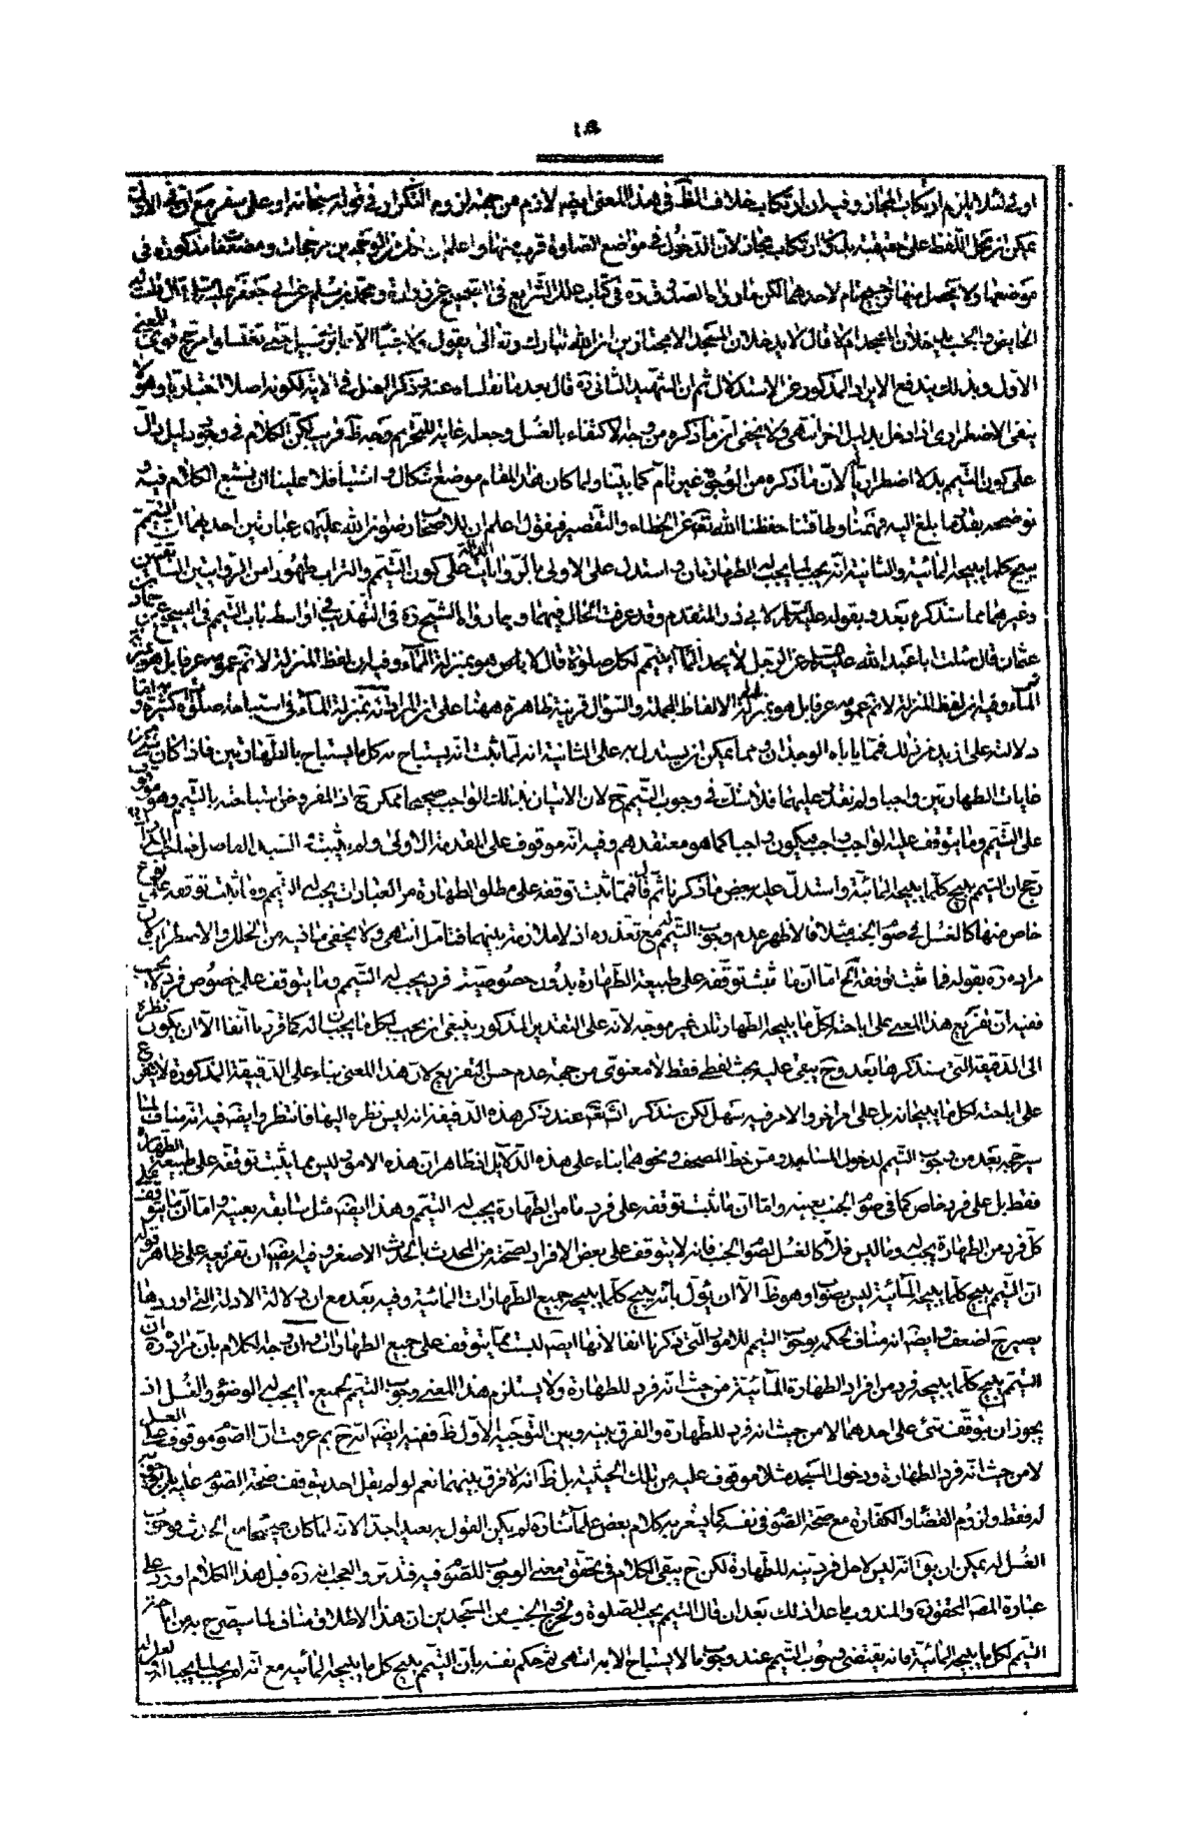 ١٥
اولى لئلا يلزم ارتكاب المجاز وفيه ان ارتكاب خلاف الظ في هذا المعنى ايضم لازم من جهة لزوم التكرار في قوله سبحانه او على سفر مع انه في الاول
يمكن ان يحمل اللفظ على حقيقته بدون ارتكاب مجاز لان الدخول في مواضع الصلوة قربه منها واعلم ان لكل من الوجهين مرجحات ومضعفات مذكورة في
موضعها ولا يحصل منها ترجيح تام لاحدهما لكن ما رواه الصدوق ره في كتاب علل الشرايع في الصحيح عن زرارة ومحمد بن مسلم عن ابي جعفر عليه السلام قال قلت له
الحايض والجنب يدخلان المسجد ام لا قال لا يدخلان المسجد الا مجتازين ان الله تبارك وتعالى يقول ولا جنبا الا عابري سبيل حتى تغتسلوا مرجح قوى للمعنى
الاول وبذلك يندفع الايراد المذكور عن الاستدلال ثم ان الشهيد الثاني ره قال بعد ما نقلناه عنه وذكر الغسل في الاية لكونه اصلا اختياريا وهو لا
ينفى الاضطراري اذا دخل بدليل اخر انتهى ولا يخفى ان ما ذكره من وجه الاكتفاء بالغسل وجعله غاية للتحريم وجه ظ قريب لكن الكلام في وجود دليل دال
على كون التيمم بدلا اضطراريا لان ما ذكره من الوجوه غير تام كما بيناه ولما كان هذا المقام موضع اشكال واشتباه فلا علينا ان نشبع الكلام فيه و
نوضحه بقدر ما بلغ اليه فهمنا وطاقتنا حفظنا الله تعالى عن الخطاء والتقصير فنقول اعلم ان للاصحاب رضوان الله عليهم عبارتين احدهما ان التيمم
يبيح كلما يبيحه المائية والثانية انه يجب لما يجب له الطهارتان واستدل على الاولى بالروايات الدالة على كون التيمم والتراب طهورا من الروايتين السابقتين
وغيرهما مما سنذكره بعد وبقوله عليه السلام لابي ذر المتقدم وقد عرفت الحال فيهما وبما رواه الشيخ ره في التهذيب في اواسط باب التيمم في الصحيح عن حماد بن
عثمان قال سئلت ابا عبد الله عليه السلام عن الرجل لا يجد الماء ايتيمم لكل صلوة قال لا هو بمنزلة الماء وفيه ان لفظ المنزلة لا تم عمومه عرفا بل هو
الماء وفيه ان لفظ المنزلة لا تم عمومه عرفا بل هو بمنزلة الالفاظ المجملة والسؤال قرينة ظاهرة ههنا على ان المراد انه بمنزلة الماء في استباحة صلوة كثيرة و
دلالته على ازيد من ذلك فمما ياباه الوجدان ومما يمكن ان يستدل به على الثانية انه لما ثبت انه يستباح به كل ما يستباح بالطهارتين فاذا كان
غايات الطهارتين واجبا ولم نقدر عليهما فلا شك في وجوب التيمم ح لان الاتيان بذلك الواجب صحيحا ممكن ح اذ المفروض استباحته بالتيمم وهو موقوف
على التيمم وما يتوقف عليه الواجب واجب فيكون واجبا كما هو معتقدهم وفيه انه موقوف على المقدمة الاولى ولم يثبت
رجح ان التيمم يبيح كلما يبيحه المائية واستدل عليه ببعض ما ذكرنا ثم قال فما ثبت توقفه على مطلق الطهارة من العبادات يجب له التيمم وما ثبت توقفه على نوع
خاص منها كالغسل في صوم الجنب مثلا فالاظهر عدم وجوب التيمم له مع تعذره اذ لا ملازمة بينهما فتامل انتهى ولا يخفى ما فيه من الخلل والاضطراب لان
مراده ره بقوله فما ثبت توقفه الخ اما ان ما ثبت توقفه على طبيعة الطهارة بدون خصوصية فرد يجب له التيمم وما يتوقف على خصوص فرد لا يجب
ففيه ان تفريع هذا المعنى على اباحته لكل ما يبيحه الطهارتان غير موجه لانه على التقدير المذكور ينبغي ان يجب لكل ما يجبان له كما قررنا انفا الا ان يكون نظره
الى الدقيقة التي سنذكرها بعد وح يبقى عليه بحث لفظي فقط لا معنوى من جهة عدم حسن التفريع لان هذا المعنى بناء على الدقيقة المذكورة لا يتفرع
على اباحته لكل ما يبيحانه بل على امر اخر والامر فيه سهل لكن سنذكر انشاء الله عند ذكر هذه الدقيقة انه ليس نظره اليها فانتظر وايضا فيه انه مناف لما
سيرجحه بعد من وجوب التيمم لدخول المساجد ومس خط المصحف ونحوهما بناء على هذه الدلايل اذ ظاهر ان هذه الامور ليس مما يثبت توقفه على طبيعة الطهارة
فقط بل على فرد خاص كما في صوم الجنب بعينه واما ان ما ثبت توقفه على فرد ما من الطهارة يجب له التيمم وهذا ايضا مثل سابقه بعينه واما ان ما يتوقف على
كل فرد من الطهارة يجب له وما ليس فلا كالغسل لصوم الجنب فانه لا يتوقف على بعض الافراد لصحته من المحدث بالحدث الاصغر وفيه ايضا ان تفريعه على ظاهر قوله
ان التيمم يبيح كلما يبيحه المائية ليس بصواب وهو ظ الا ان يؤول بانه يبيح كلما يبيحه جميع الطهارات المائية وفيه بعد مع ان دلالة الادلة التي اوردها
يصير ح اضعف وايضا انه مناف لحكمه بوجوب التيمم للامور التي ذكرنا انفا لانها ايضا ليست مما يتوقف على جميع الطهارات وان وجه الكلام بان مراده ان
التيمم يبيح كلما يبيحه فرد من افراد الطهارة المائية من حيث انه فرد للطهارة ولا يستلزم هذا المعنى وجوب التيمم لجميع ما يجب له الوضوء والغسل اذ
يجوز ان يتوقف شئ على احدهما لا من حيث انه فرد للطهارة والفرق بينه وبين التوجيه الاول ظ ففيه ايضا انه ح بم عرفت ان الصوم موقوف على الغسل
لا من حيث انه فرد الطهارة ودخول المسجد مثلا موقوف عليه من تلك الحيثية بل ظ انه لا فرق بينهما نعم لو لم يقل احد بتوقف صحة الصوم عليه بل بوجوبه
له فقط ولزوم القضاء والكفارة مع صحة الصوم في نفسه كما يشعر به كلام بعض علمائنا ره لم يكن القول به بعيدا جدا لانه لما كان مع الحدث ووجوب
الغسل له يمكن ان يق انه ليس لاجل فرديته للطهارة لكن ح يبقى الكلام في تحقق معنى الوجوب للصوم فيه فتدبر والعجب انه ره قبل هذا الكلام اورد على
عبارة المصنف المحقق ره والمندوب ما عدا ذلك بعد ان قال التيمم يجب للصلوة ولخروج الجنب من المسجدين ان هذا الاطلاق مناف لما سيصرح به من اباحة
التيمم لكل ما يبيحه المائية فانه يقتضى وجوب التيمم عند وجوب ما لا يستباح الا به انتهى ثم حكم نفسه بان التيمم يبيح كل ما يبيحه المائية مع انه لم يوجب